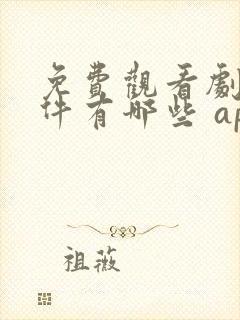 免費觀看劇
件有哪些 ap
祖薇